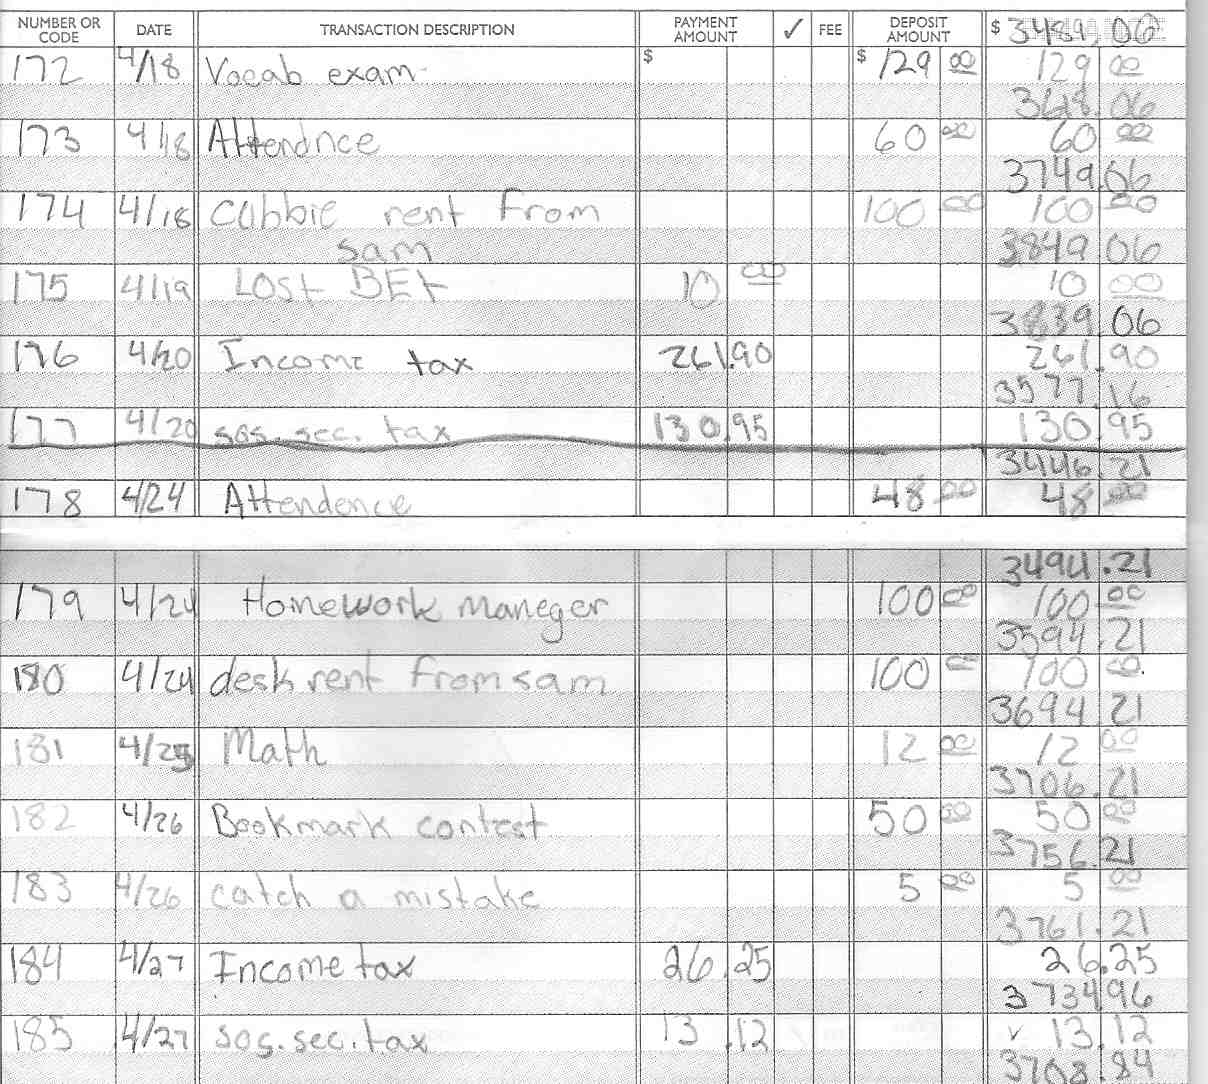 NUMBER OR CODE DATE TRANSACTION DESCRIPTION PAYMENT AMOUNT ✓ FEE DEPOSIT AMOUNT $ 3489.06
172 4/18 Vocab exam $ $ 129 00 129 00
3618.06
173 4/18 Attendnce 60 00 60 00
3749.06
174 4/18 cubbie rent from 100 00 100 00
sam 3849.06
175 4/19 LOST BET 10 00 10 00
3839.06
176 4/20 Income tax 261.90 261.90
3577.16
177 4/20 sos. sec. tax 130.95 130.95
3446.21
178 4/24 Attendence 48 00 48 00
3494.21
179 4/24 Homework maneger 100 00 100 00
3594.21
180 4/24 desk rent from sam 100 00 100 00
3694.21
181 4/25 Math 12 00 12 00
3706.21
182 4/26 Bookmark contest 50 00 50 00
3756.21
183 4/26 catch a mistake 5 00 5 00
3761.21
184 4/27 Income tax 26.25 26.25
3734.96
185 4/27 sos. sec. tax 13.12 13.12
3708.84